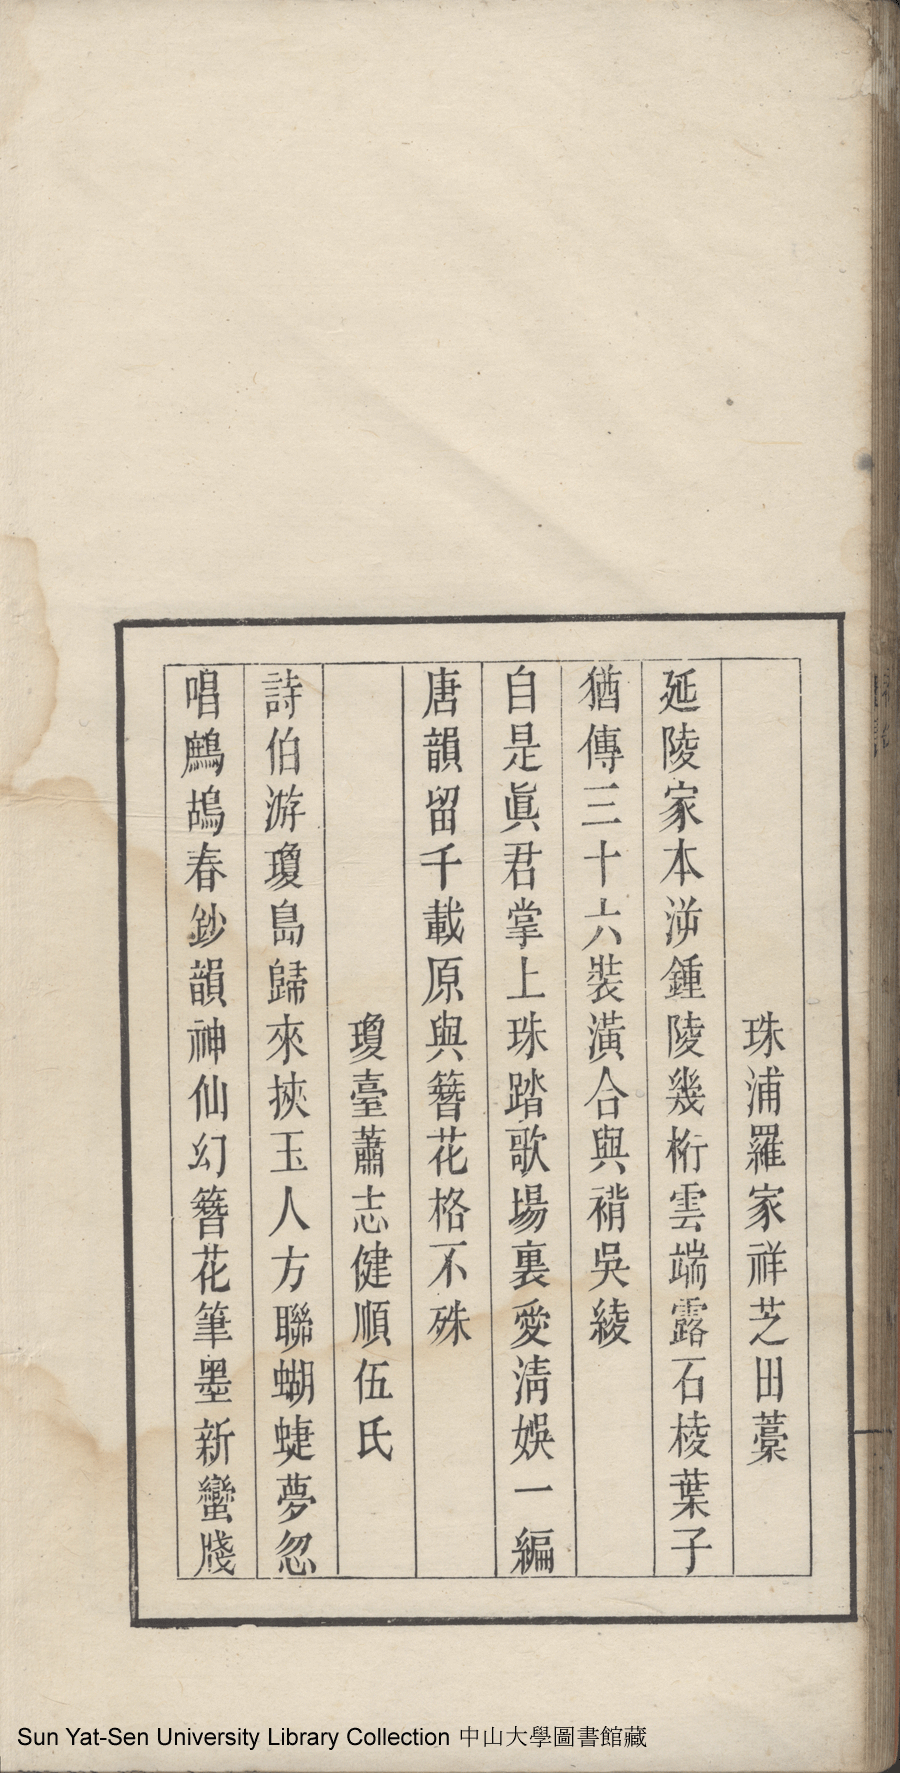 珠浦羅家祥芝田藳
延陵家本泝鍾陵幾桁雲端露石棱葉子
猶傳三十六裝潢合與褙吳綾
自是眞君掌上珠踏歌場裏愛淸娛一編
唐韻留千載原與簪花格不殊
瓊臺蕭志健順伍氏
詩伯游瓊島歸來挾玉人方聯蝴蜨夢忽
唱鷓鴣春鈔韻神仙幻簪花筆墨新蠻牋
Sun Yat-Sen University Library Collection 中山大學圖書館藏